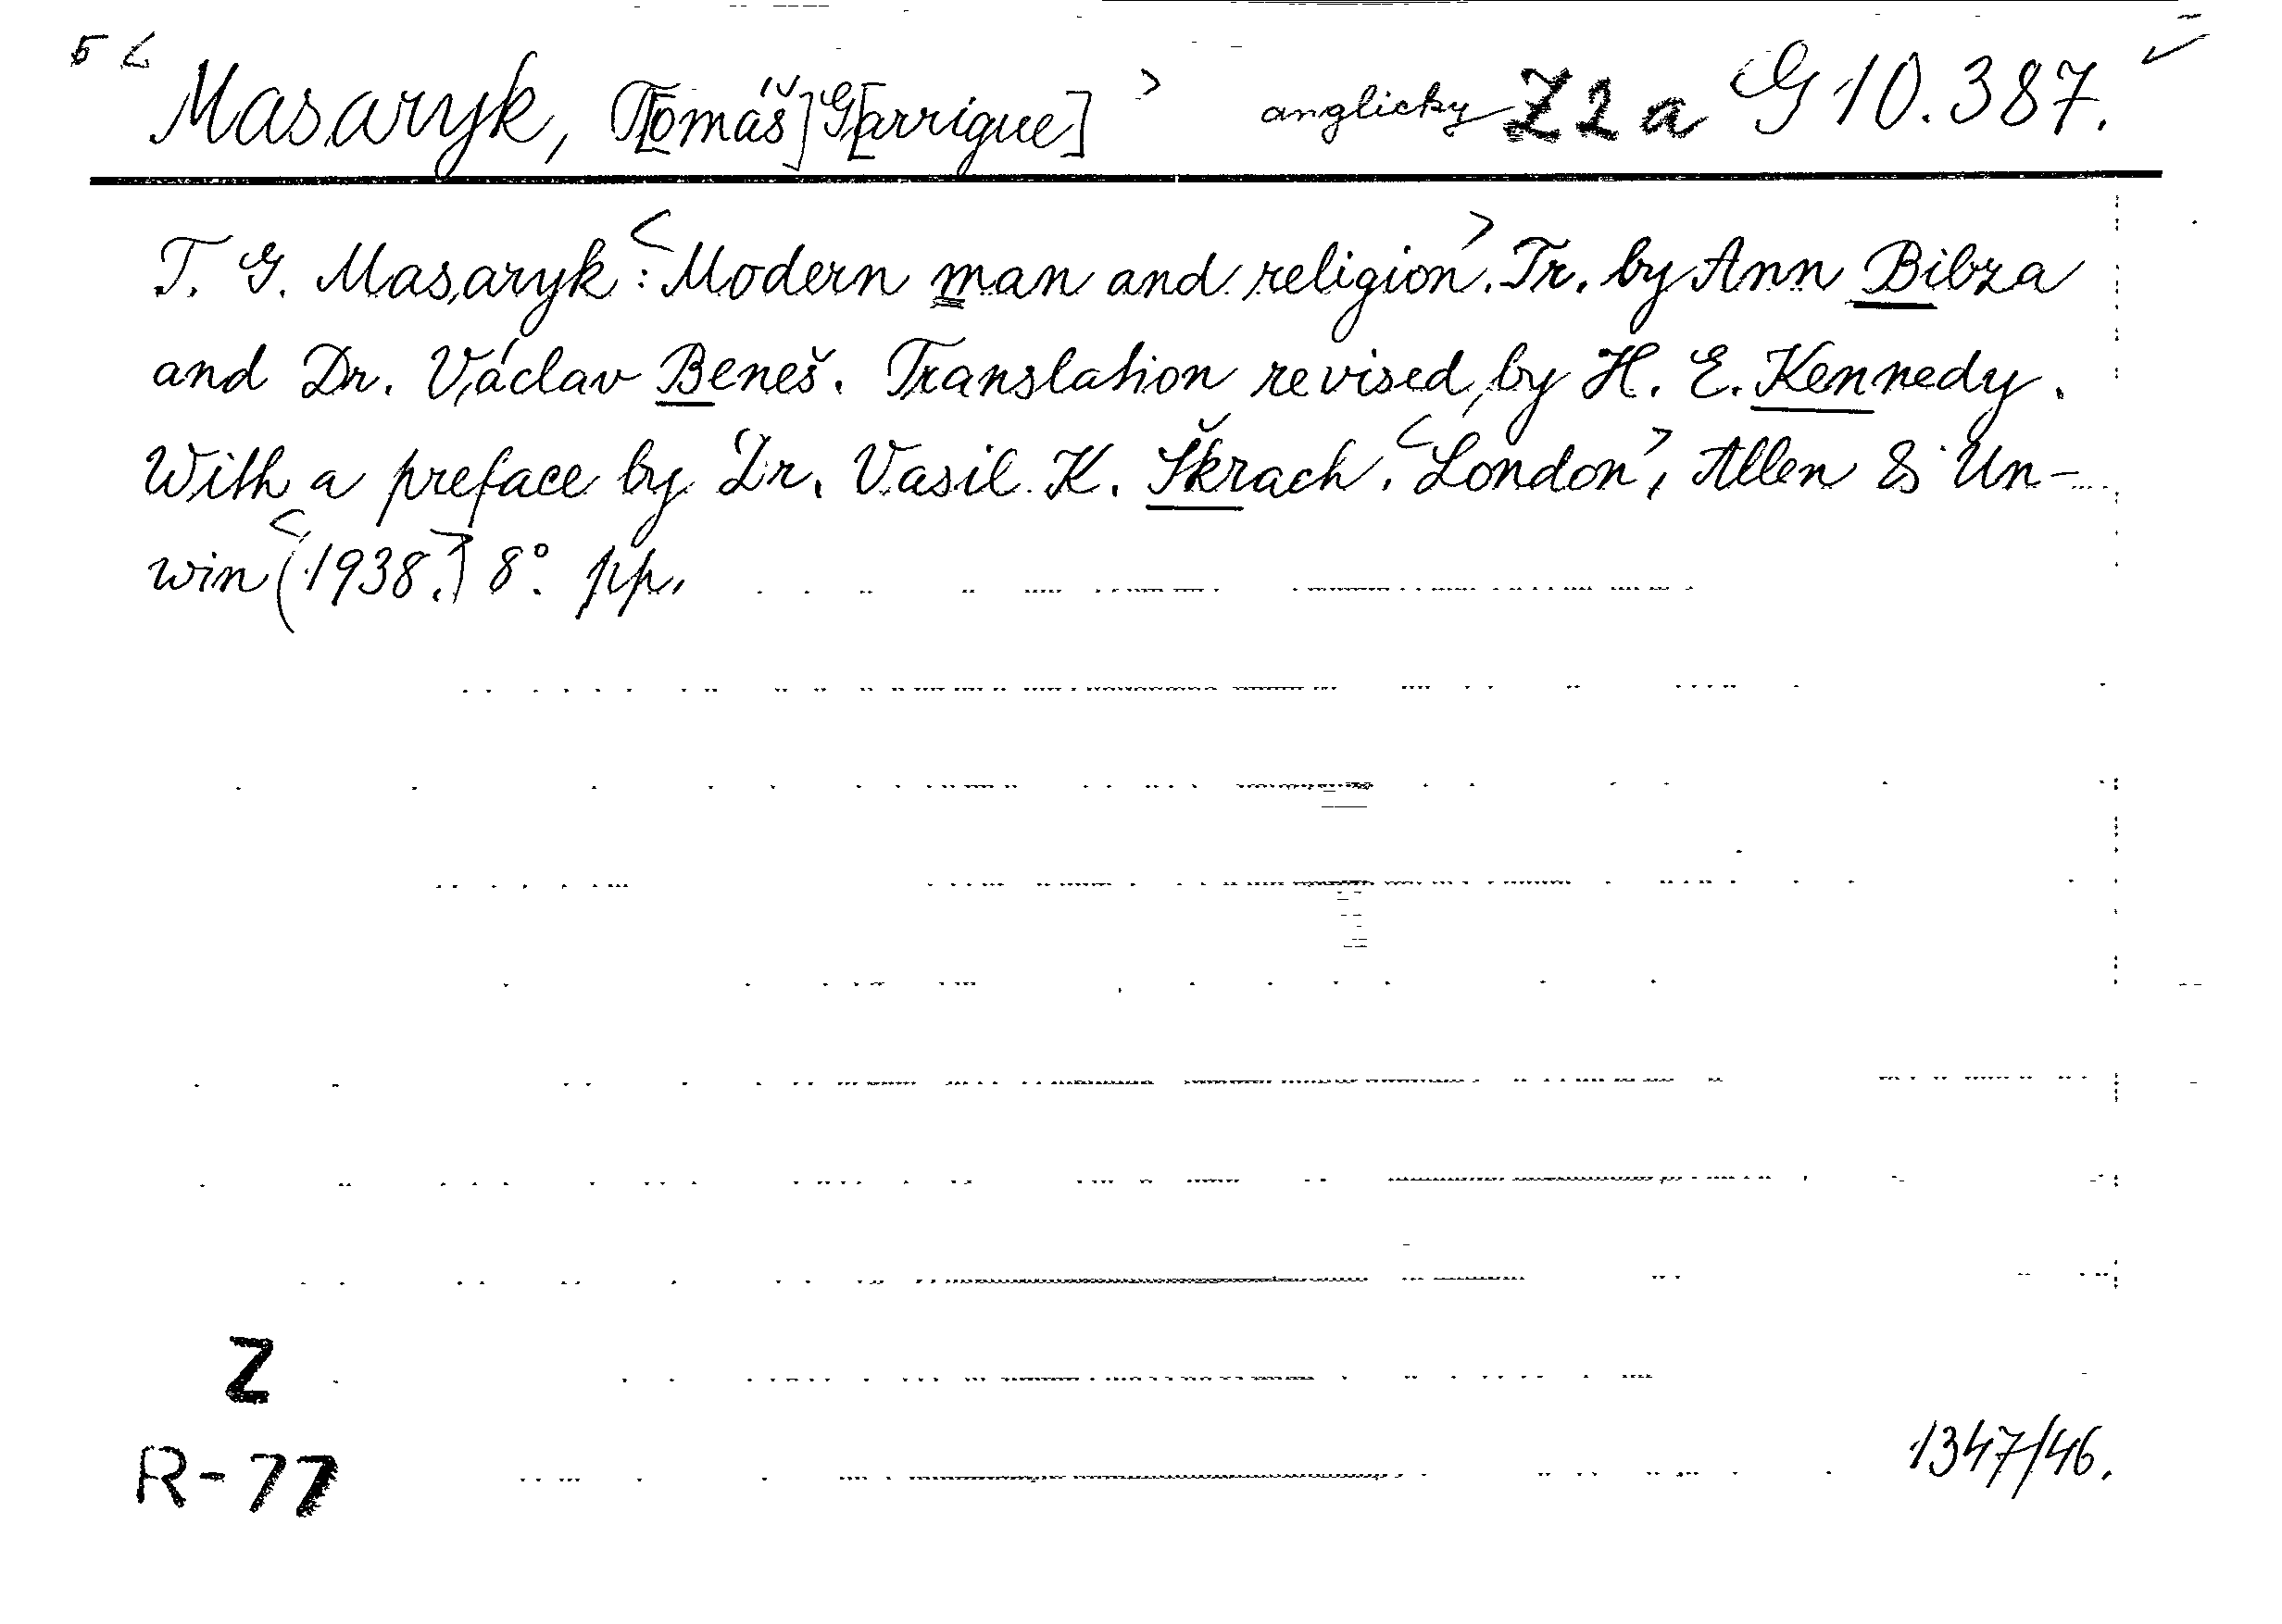 5 < Masaryk, T[omáš] G[arrigue] > anglicky Z 2 a G 10.387. ✓
T. G. Masaryk: <Modern man and religion>. Tr. by Ann Bibza
and Dr. Václav Beneš. Translation revised by H. E. Kennedy.
With a preface by Dr. Vasil K. Škrach. <London>, Allen & Un-
win <(1938.)> 8° pp.
Z
R-77
1347/46.